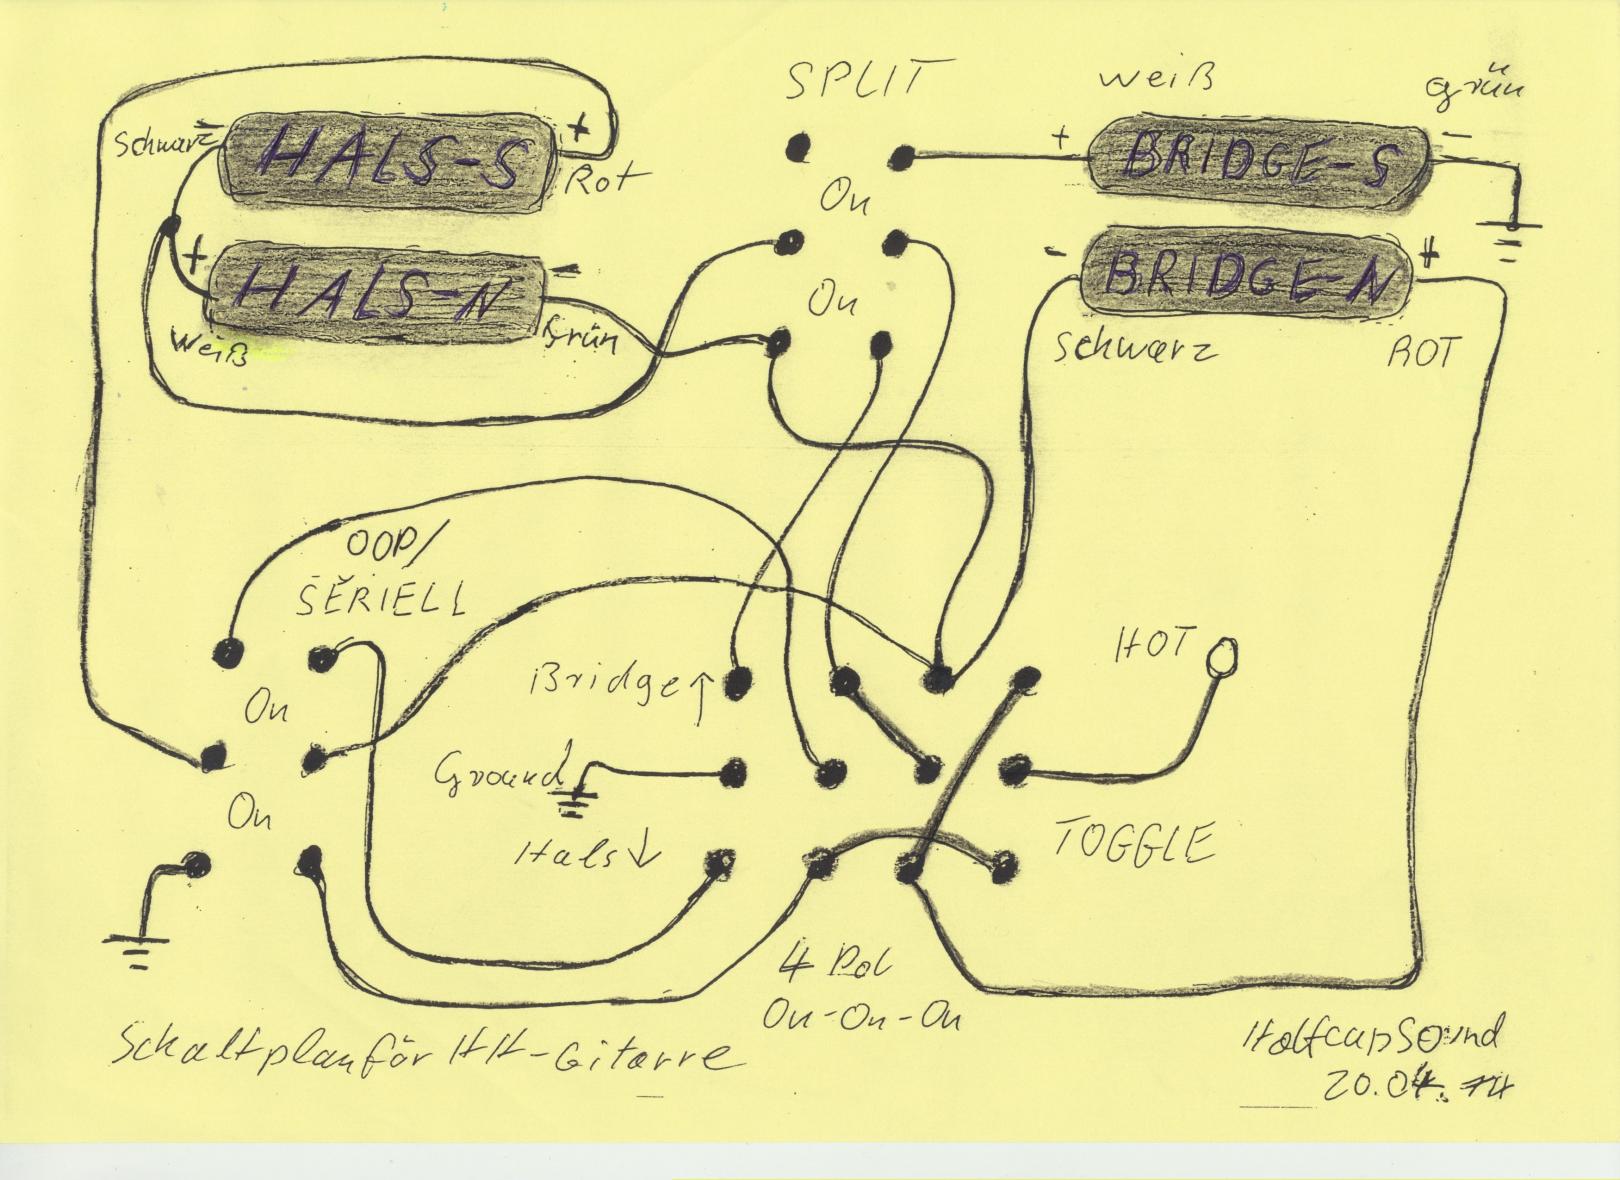 SPLIT
weiß
grün
Schwarz
-
HALS-S
+
Rot
+
BRIDGE-S
-
On
+
HALS-N
-
-
BRIDGE-N
+
On
Weiß
Grün
Schwarz
ROT
OOP/
SERIELL
On
Bridge↑
HOT
Ground
On
Hals↓
TOGGLE
4 Pol
On-On-On
Schaltplan för HH-Gitarre
HalfcapSound
20.04.14